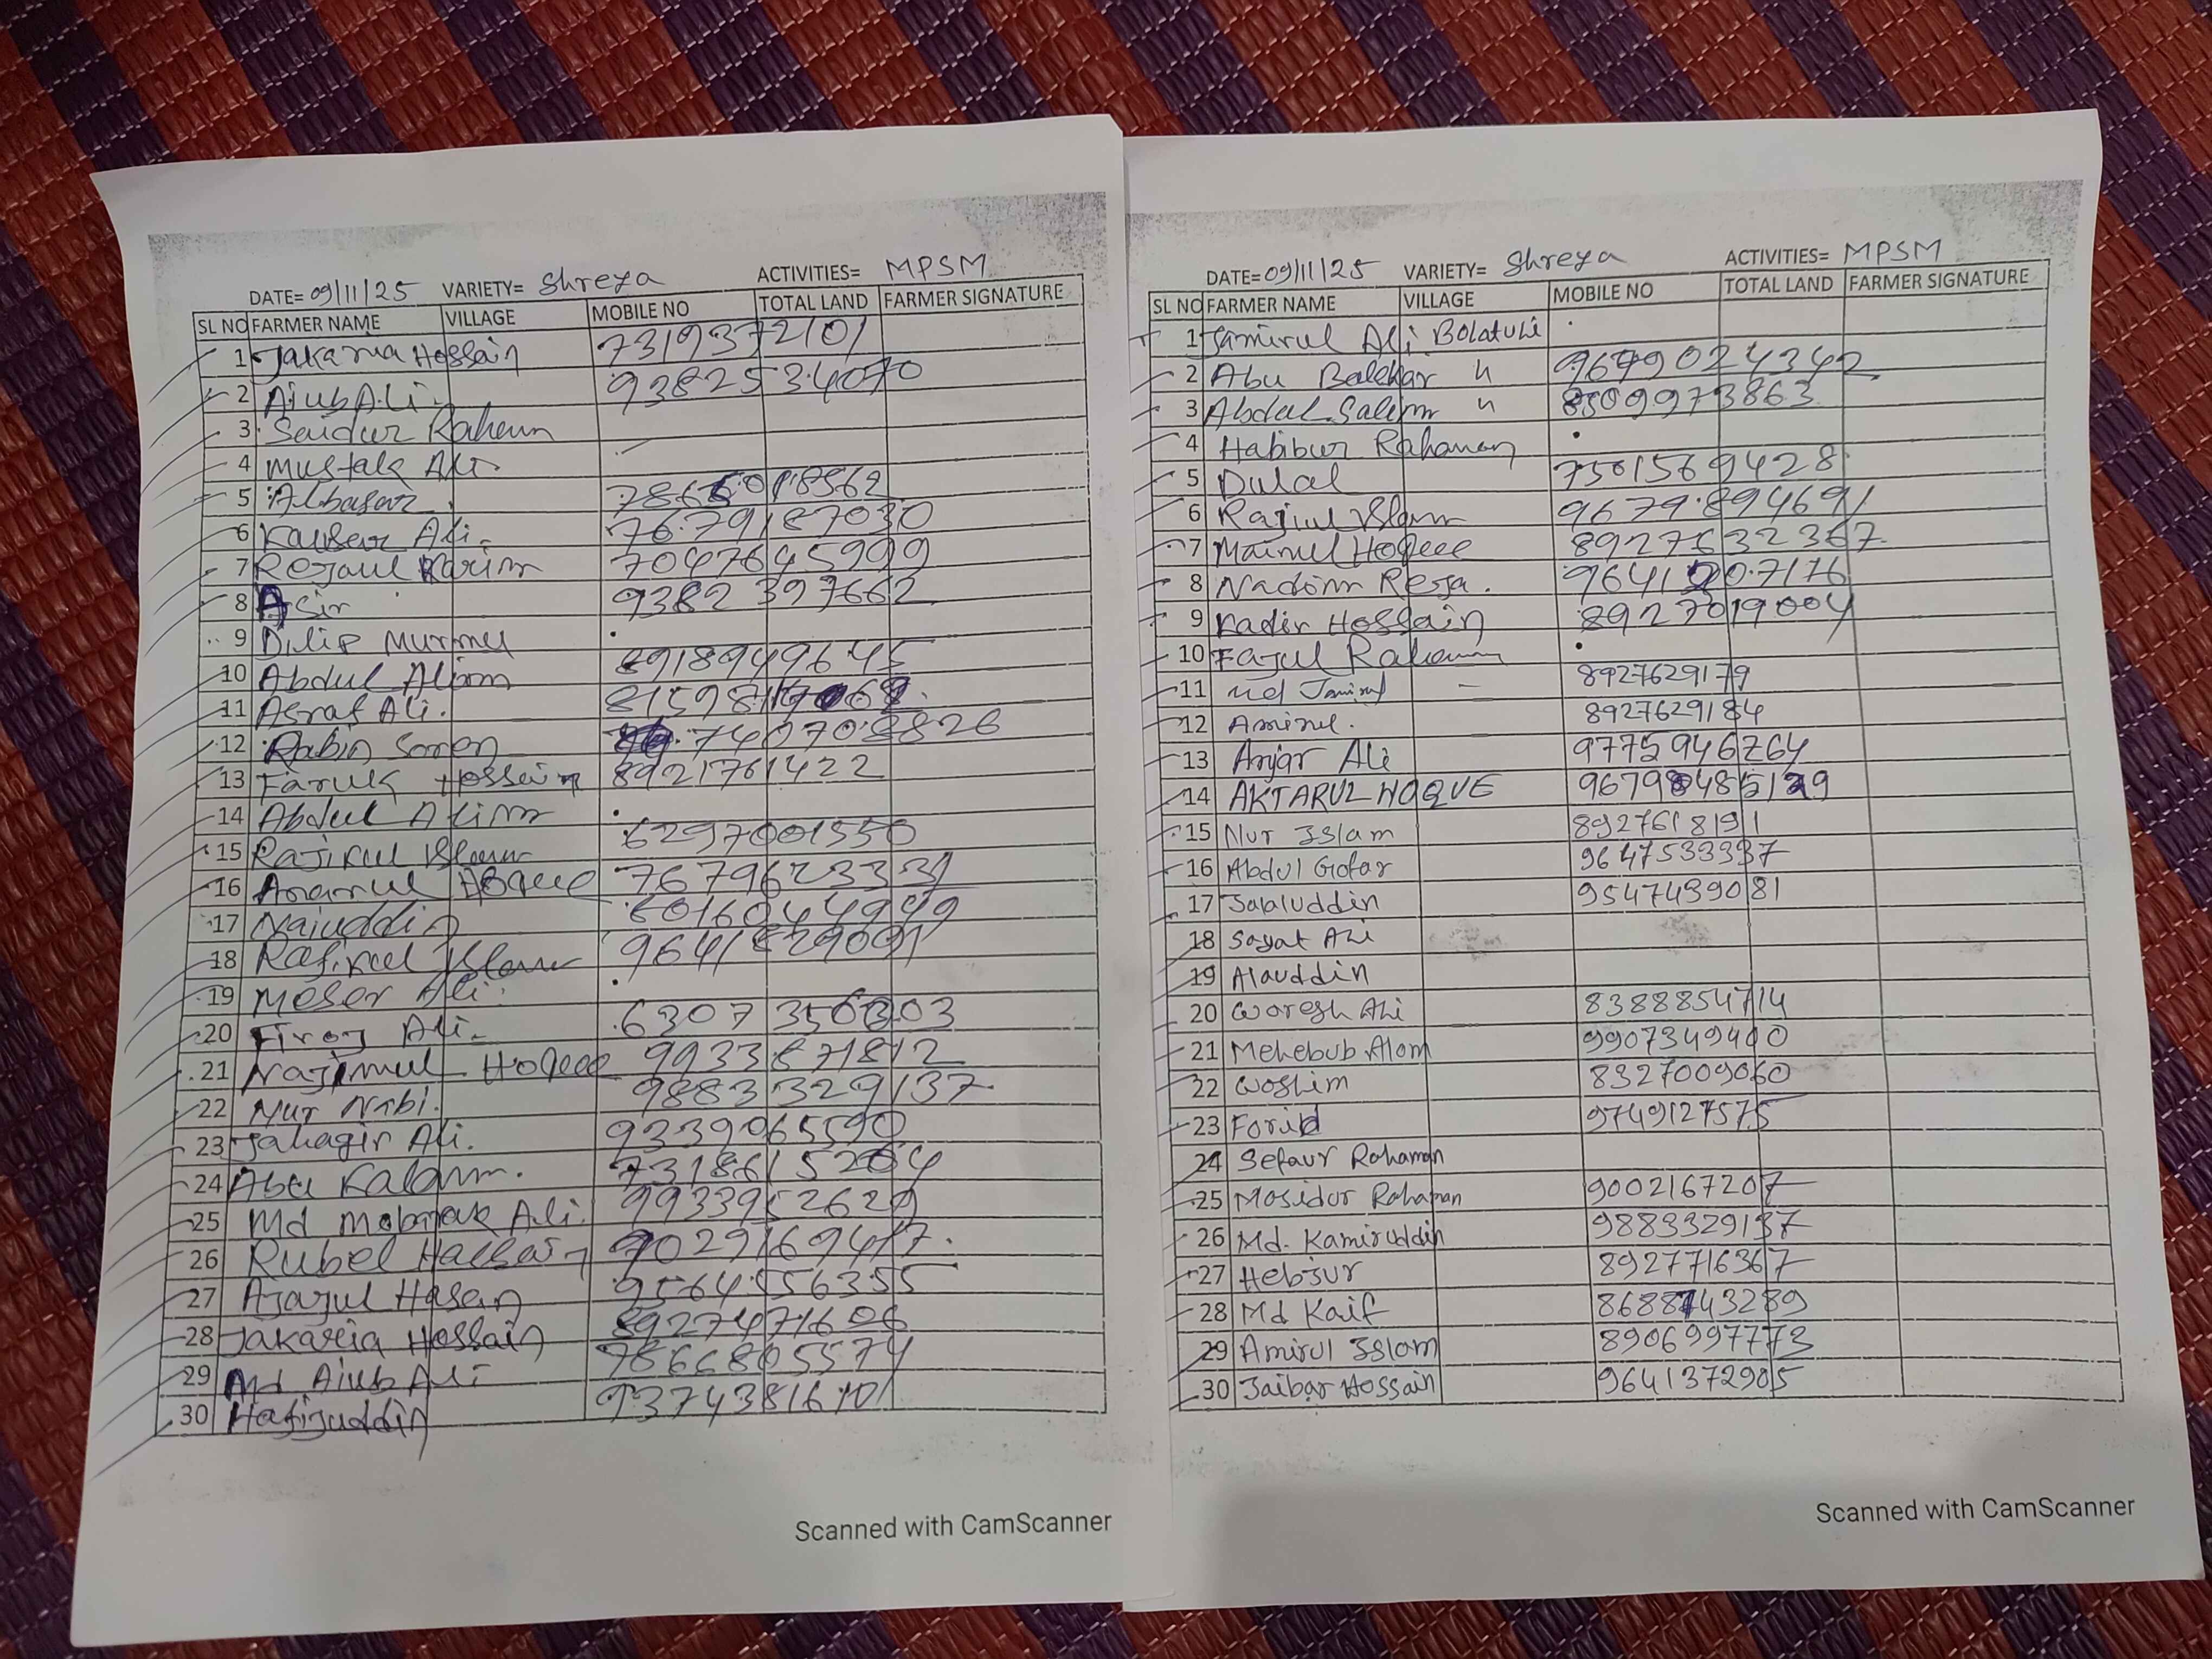 DATE= 09/11/25 VARIETY= Shreya ACTIVITIES= MPSM
SL NO FARMER NAME VILLAGE MOBILE NO TOTAL LAND FARMER SIGNATURE
1 Jakaria Hossain 7319372101
2 Aiub Ali. 9382534070
3 Saidur Rahem
4 Mustak Ali.
5 Albasar
6 Kausar Ali. 7679187030
7 Rejaul Karim 7047645999
8 Asir 9382397662
9 Dilip Murmu
10 Abdul Alim 8918949645
11 Asraf Ali.
12 Rabin Soren 7407088826
13 Faruk Hossain 8921761422
14 Abdul Alim
15 Rajikul Islam 6297001550
16 Anarul Hoque
17 Naiuddin
18 Rafikul Islam
19 Meser Ali.
20 Firoj Ali.
21 Najimul Hoque 9933871812
22 Nur Nabi. 9883329137
23 Jahagir Ali. 9339065590
24 Abu Kalam. 7318615204
25 Md Mobarak Ali. 9933952629
26 Rubel Hassan
27 Ajajul Hasan 9564556355
28 Jakaria Hossain 8927471606
29 Md Aiub Ali
30 Hafijuddin
Scanned with CamScanner
DATE= 09/11/25 VARIETY= Shreya ACTIVITIES= MPSM
SL NO FARMER NAME VILLAGE MOBILE NO TOTAL LAND FARMER SIGNATURE
1 Jamirul Ali Bolatuli
2 Abu Balekar "
3 Abdul Salem " 8509973863
4 Habibur Rahaman
5 Dulal 7501569428
6 Rajiul Islam 9679894691
7 Mainul Hoque
8 Nadim Reja.
9 Kadir Hossain 8927019004
10 Fajul Rahaman
11 Md Jamirul — 8927629179
12 Aminul. 8927629184
13 Anjar Ali 9775946264
14 AKTARUL HOQUE
15 Nur Islam 8927618191
16 Abdul Gofar 9647533337
17 Jalaluddin 9547439081
18 Sayat Ali
19 Alauddin
20 Woresh Ali 8388854714
21 Mehebub Alom 9907349400
22 Woshim 8327009060
23 Forid 9749127575
24 Sefaur Rohaman
25 Mosidur Rohaman 9002167207
26 Md. Kamiruddin 9883329137
27 Hebjur 8927716367
28 Md Kaif 8688743289
29 Amirul Islam 8906997773
30 Jaibar Hossain 9641372905
Scanned with CamScanner